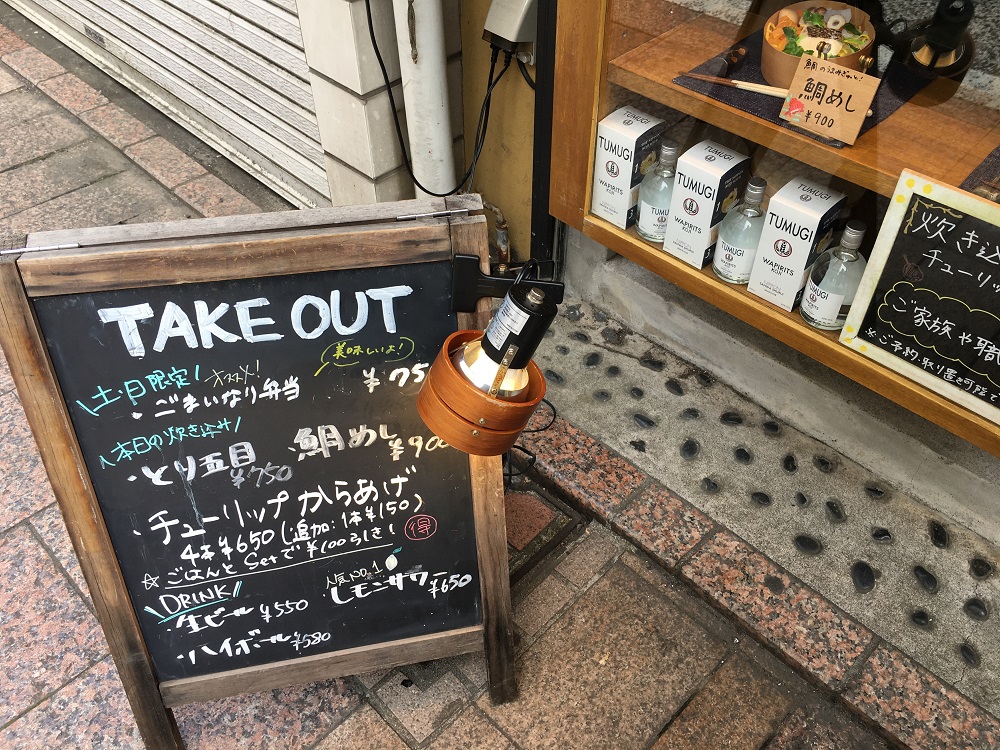 TAKE OUT
土・日限定!
オススメ!
美味しいよ!
・ごまいなり弁当 ¥75
本日の炊き込み
・とり五目 ¥750
・鯛めし ¥900
・チューリップからあげ
4本¥650(追加:1本¥150)
☆ごはんとSetで¥100引き! 得
DRINK
・生ビール ¥550
人気NO.1
レモンサワー ¥650
・ハイボール ¥580
鯛めし
¥900
TUMUGI
WAPIRITS
TUMUGI
WAPIRITS
TUMUGI
WAPIRITS
TUMUGI
TUMUGI
TUMUGI
炊き込
チューリ
ご家族や職
※ご予約・取り置き可能で